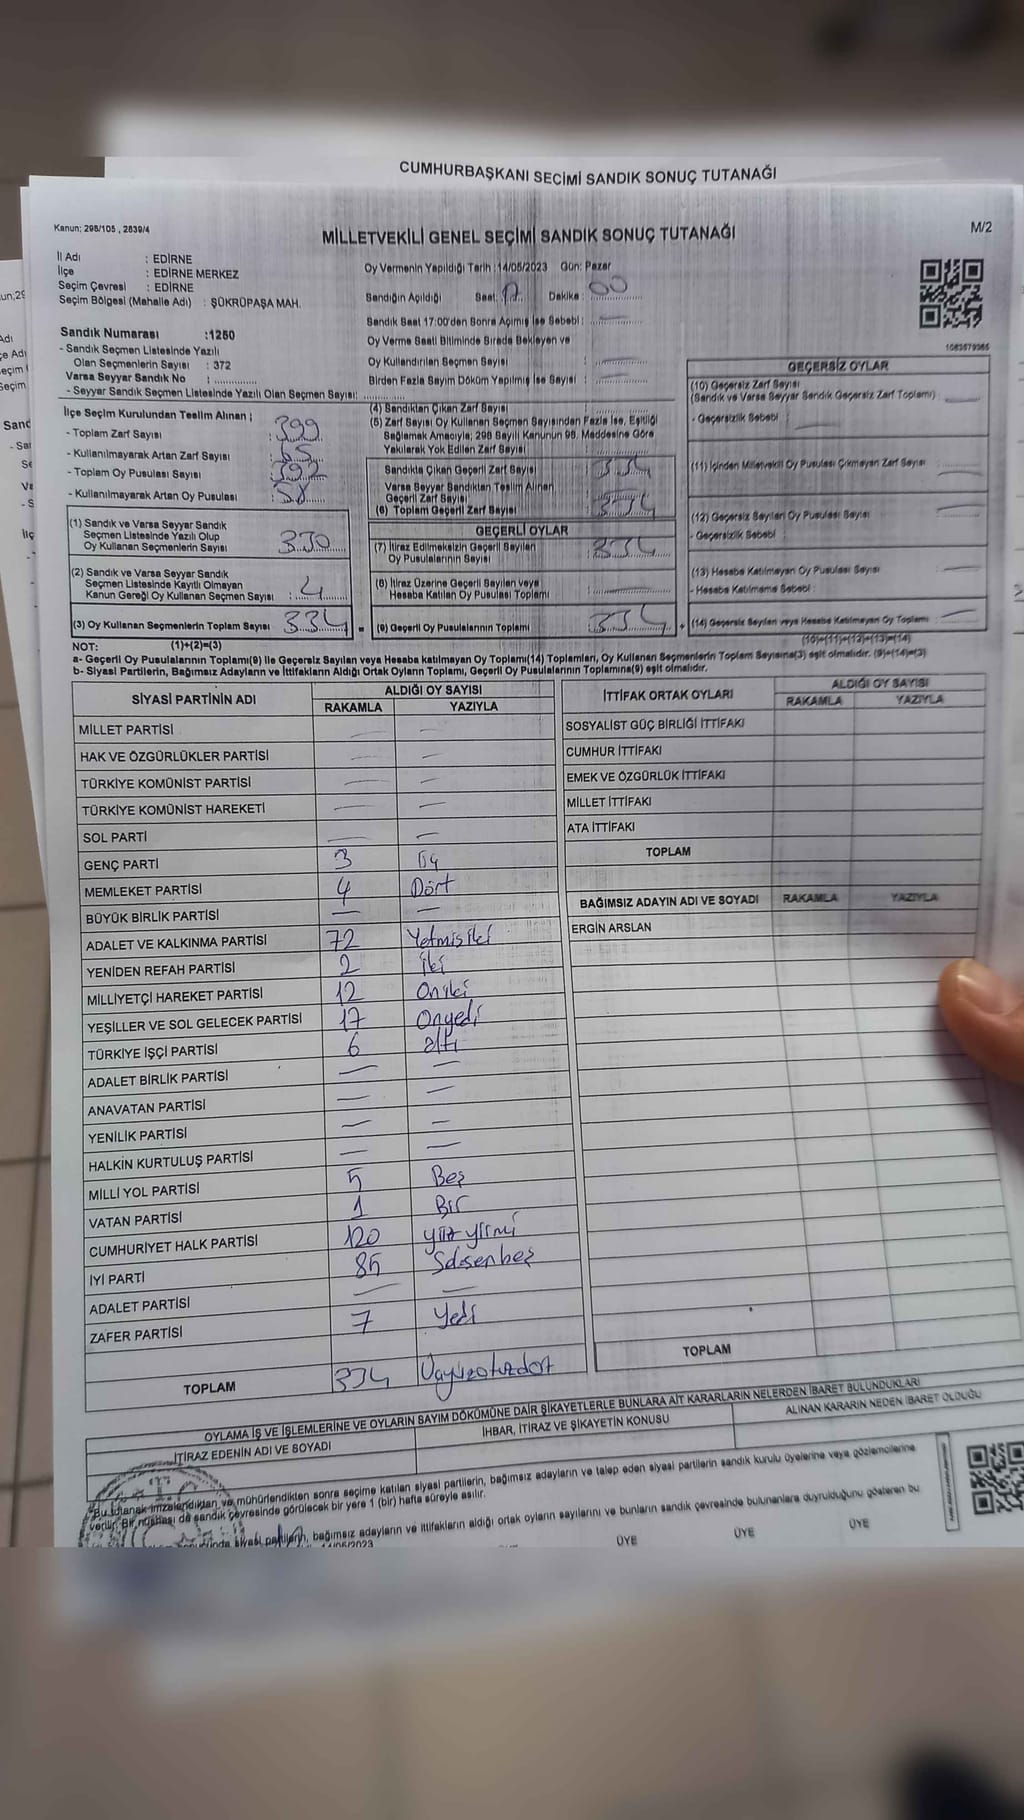 CUMHURBAŞKANI SEÇİMİ SANDIK SONUÇ TUTANAĞI
Kanun: 298/105 , 2839/4
MİLLETVEKİLİ GENEL SEÇİMİ SANDIK SONUÇ TUTANAĞI
M/2
İl Adı : EDİRNE
İlçe : EDİRNE MERKEZ
Seçim Çevresi : EDİRNE
Seçim Bölgesi (Mahalle Adı) : ŞÜKRÜPAŞA MAH.
Oy Vermenin Yapıldığı Tarih :14/05/2023 Gün: Pazar
Sandığın Açıldığı Saat: 17 Dakika: 00
Sandık Saat 17:00'den Sonra Açılmış İse Sebebi :
Oy Verme Saati Bitiminde Sırada Bekleyen ve
Oy Kullandırılan Seçmen Sayısı :
Birden Fazla Sayım Döküm Yapılmış İse Sayısı :
1083679365
Sandık Numarası :1250
- Sandık Seçmen Listesinde Yazılı
Olan Seçmenlerin Sayısı : 372
Varsa Seyyar Sandık No :
- Seyyar Sandık Seçmen Listesinde Yazılı Olan Seçmen Sayısı:
İlçe Seçim Kurulundan Teslim Alınan ;
- Toplam Zarf Sayısı : 399
- Kullanılmayarak Artan Zarf Sayısı : 65
- Toplam Oy Pusulası Sayısı : 392
- Kullanılmayarak Artan Oy Pusulası : 58
(1) Sandık ve Varsa Seyyar Sandık
Seçmen Listesinde Yazılı Olup
Oy Kullanan Seçmenlerin Sayısı : 330
(2) Sandık ve Varsa Seyyar Sandık
Seçmen Listesinde Kayıtlı Olmayan
Kanun Gereği Oy Kullanan Seçmen Sayısı : 4
(3) Oy Kullanan Seçmenlerin Toplam Sayısı : 334
(4) Sandıktan Çıkan Zarf Sayısı
(5) Zarf Sayısı Oy Kullanan Seçmen Sayısından Fazla İse, Eşitliği
Sağlamak Amacıyla; 298 Sayılı Kanunun 98. Maddesine Göre
Yakılarak Yok Edilen Zarf Sayısı :
Sandıkta Çıkan Geçerli Zarf Sayısı : 334
Varsa Seyyar Sandıktan Teslim Alınan
Geçerli Zarf Sayısı :
(6) Toplam Geçerli Zarf Sayısı : 334
GEÇERLİ OYLAR
(7) İtiraz Edilmeksizin Geçerli Sayılan
Oy Pusulalarının Sayısı : 334
(8) İtiraz Üzerine Geçerli Sayılan veya
Hesaba Katılan Oy Pusulası Toplamı :
= (9) Geçerli Oy Pusulalarının Toplamı : 334
GEÇERSİZ OYLAR
(10) Geçersiz Zarf Sayısı
(Sandık ve Varsa Seyyar Sandık Geçersiz Zarf Toplamı) :
- Geçersizlik Sebebi :
(11) İçinden Milletvekili Oy Pusulası Çıkmayan Zarf Sayısı :
(12) Geçersiz Sayılan Oy Pusulası Sayısı :
- Geçersizlik Sebebi :
(13) Hesaba Katılmayan Oy Pusulası Sayısı :
- Hesaba Katılmama Sebebi :
+ (14) Geçersiz Sayılan veya Hesaba Katılmayan Oy Toplamı :
NOT: (1)+(2)=(3)
(10)+(11)+(12)+(13)=(14)
a- Geçerli Oy Pusulalarının Toplamı(9) ile Geçersiz Sayılan veya Hesaba katılmayan Oy Toplamı(14) Toplamları, Oy Kullanan Seçmenlerin Toplam Sayısına(3) eşit olmalıdır. (9)+(14)=(3)
b- Siyasi Partilerin, Bağımsız Adayların ve İttifakların Aldığı Ortak Oyların Toplamı, Geçerli Oy Pusulalarının Toplamına(9) eşit olmalıdır.
SİYASİ PARTİNİN ADI ALDIĞI OY SAYISI
RAKAMLA YAZIYLA
MİLLET PARTİSİ — —
HAK VE ÖZGÜRLÜKLER PARTİSİ — —
TÜRKİYE KOMÜNİST PARTİSİ — —
TÜRKİYE KOMÜNİST HAREKETİ — —
SOL PARTİ — —
GENÇ PARTİ 3 Üç
MEMLEKET PARTİSİ 4 Dört
BÜYÜK BİRLİK PARTİSİ — —
ADALET VE KALKINMA PARTİSİ 72 Yetmişiki
YENİDEN REFAH PARTİSİ 2 İki
MİLLİYETÇİ HAREKET PARTİSİ 12 Oniki
YEŞİLLER VE SOL GELECEK PARTİSİ 17 Onyedi
TÜRKİYE İŞÇİ PARTİSİ 6 altı
ADALET BİRLİK PARTİSİ — —
ANAVATAN PARTİSİ — —
YENİLİK PARTİSİ — —
HALKIN KURTULUŞ PARTİSİ — —
MİLLİ YOL PARTİSİ 5 Beş
VATAN PARTİSİ 1 Bir
CUMHURİYET HALK PARTİSİ 120 yüz yirmi
İYİ PARTİ 85 Seksenbeş
ADALET PARTİSİ — —
ZAFER PARTİSİ 7 Yedi
TOPLAM 334 Üçyüzotuzdört
İTTİFAK ORTAK OYLARI ALDIĞI OY SAYISI
RAKAMLA YAZIYLA
SOSYALİST GÜÇ BİRLİĞİ İTTİFAKI
CUMHUR İTTİFAKI
EMEK VE ÖZGÜRLÜK İTTİFAKI
MİLLET İTTİFAKI
ATA İTTİFAKI
TOPLAM
BAĞIMSIZ ADAYIN ADI VE SOYADI RAKAMLA YAZIYLA
ERGİN ARSLAN
TOPLAM
OYLAMA İŞ VE İŞLEMLERİNE VE OYLARIN SAYIM DÖKÜMÜNE DAİR ŞİKAYETLERLE BUNLARA AİT KARARLARIN NELERDEN İBARET BULUNDUKLARI
İTİRAZ EDENİN ADI VE SOYADI İHBAR, İTİRAZ VE ŞİKAYETİN KONUSU ALINAN KARARIN NEDEN İBARET OLDUĞU
"Bu tutanak imzalandıktan ve mühürlendikten sonra seçime katılan siyasi partilerin, bağımsız adayların ve talep eden siyasi partilerin sandık kurulu üyelerine veya gözlemcilerine
verilir. Bir nüshası da sandık çevresinde görülecek bir yere 1 (bir) hafta süreyle asılır.
siyasi partilerin, bağımsız adayların ve ittifakların aldığı ortak oyların sayılarını ve bunların sandık çevresinde bulunanlara duyrulduğunu gösteren bu
14/05/2023
ÜYE ÜYE ÜYE